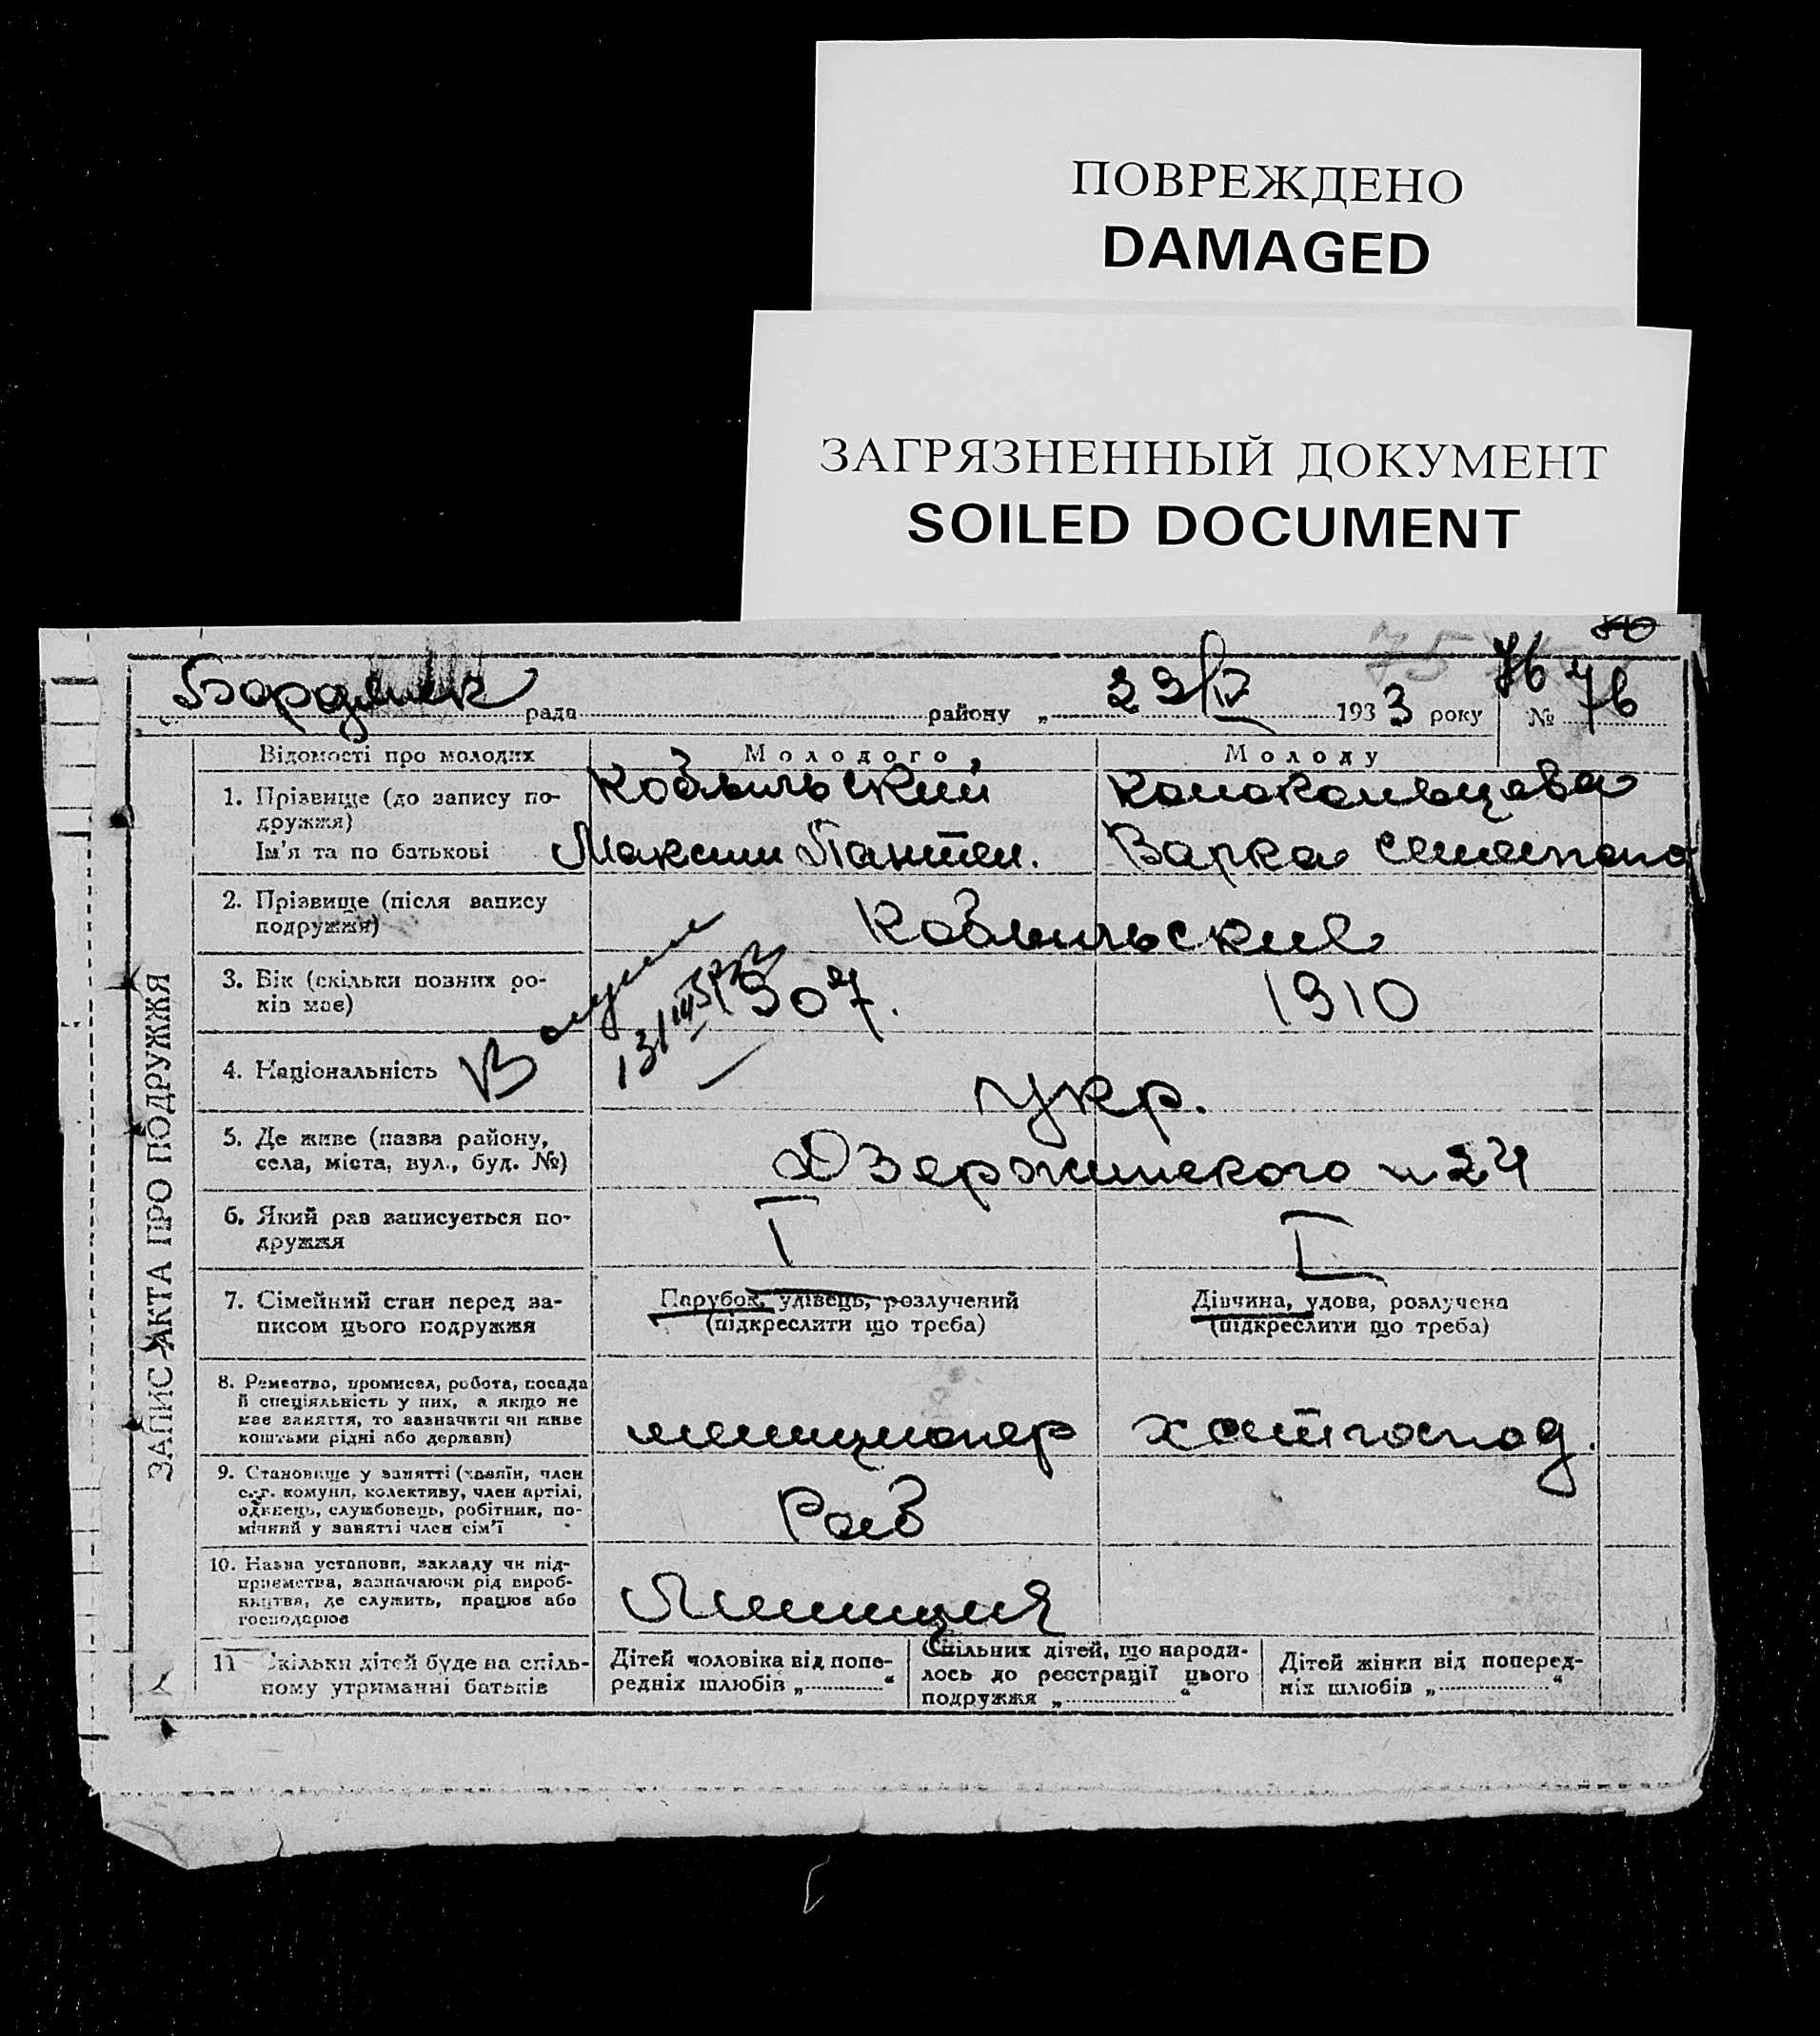 ПОВРЕЖДЕНО
DAMAGED
ЗАГРЯЗНЕННЫЙ ДОКУМЕНТ
SOILED DOCUMENT
75 76
рада району „ 29/IV 1933 року № 76
Відомості про молодих Молодого Молоду
1. Прізвище (до запису по-
дружжя)
Ім'я та по батькові
Кобыльский
Максим Пантел.
Варка
2. Прізвище (після запису
подружжя)
Кобыльские
3. Вік (скільки повних ро-
ків має)
1907. 1910
4. Національність
укр.
5. Де живе (назва району,
села, міста, вул., буд. №)
Дзержинского № 24
6. Який раз записується по-
дружжя
I I
7. Сімейний стан перед за-
писом цього подружжя
Парубок, удівець, розлучений
(підкреслити що треба)
Дівчина, удова, розлучена
(підкреслити що треба)
8. Ремество, промисел, робота, посада
й спеціяльність у них, а якщо не
має заняття, то зазначити чи живе
коштами рідні або держави)
милиционер хатгоспод.
9. Становище у занятті (хазяїн, член
с.-г. комуни, колективу, член артілі,
одинець, службовець, робітник, по-
мічний у занятті член сім'ї
Раб
10. Назва установи, закладу чи під-
приємства, зазначаючи рід вироб-
ництва, де служить, працює або
господарює
Милиция
11 Скільки дітей буде на спіль-
ному утриманні батьків
Дітей чоловіка від попе-
редніх шлюбів „ “
Спільних дітей, що народи-
лось до реєстрації цього
подружжя „ “
Дітей жінки від поперед-
ніх шлюбів „ “
ЗАПИС АКТА ПРО ПОДРУЖЖЯ